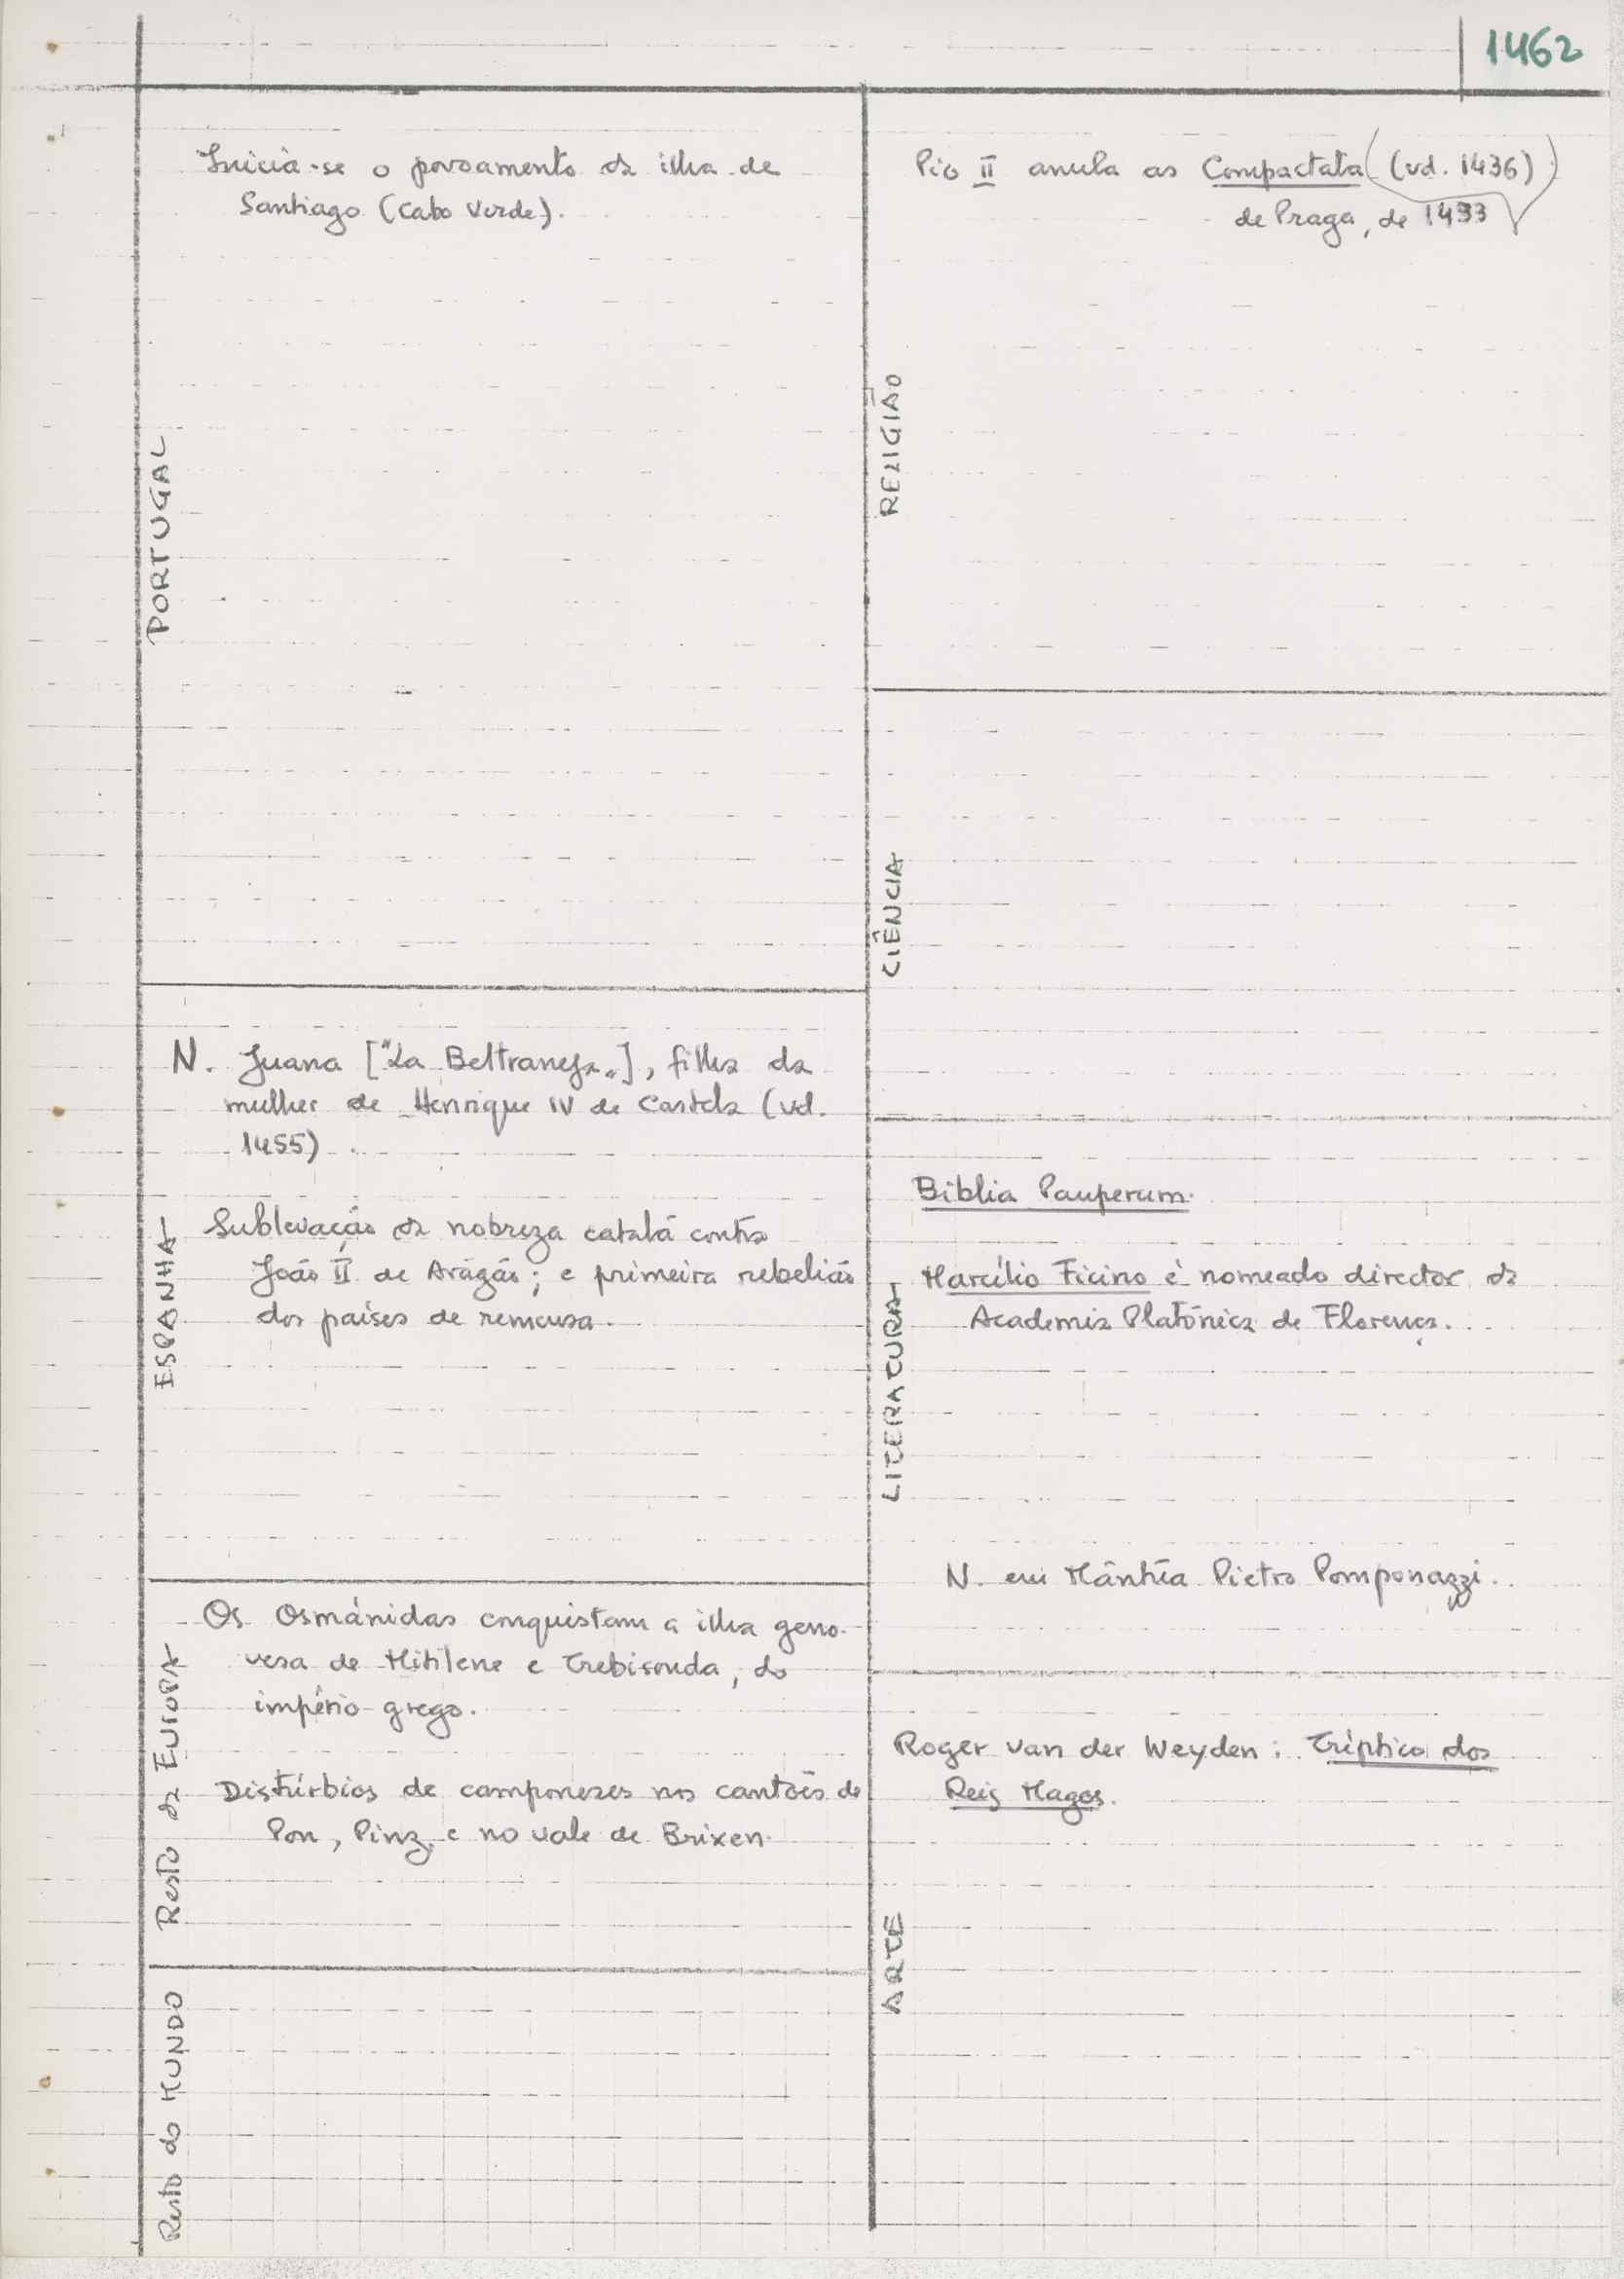 1462
PORTUGAL
Inicia-se o povoamento da ilha de
Santiago (Cabo Verde).
ESPANHA
N. Juana ["La Beltraneja"], filha da
mulher de Henrique IV de Castela (vd.
1455).
Sublevação da nobreza catalã contra
João II de Aragão; e primeira rebelião
dos países de remensa.
Resto da EUROPA
Os Osmánidas conquistam a ilha geno-
vesa de Mitilene e Trebisonda, do
império grego.
Distúrbios de camponeses nos cantões de
Pon, Pinz. e no vale de Brixen.
Resto do MUNDO
RELIGIÃO
Pio II anula as Compactata (vd. 1436)
de Praga, de 1433
CIÊNCIA
LITERATURA
Biblia Pauperum.
Marcílio Ficino é nomeado director da
Academia Platónica de Florença.
N. em Mântua Pietro Pomponazzi.
ARTE
Roger van der Weyden: Tríptico dos
Reis Magos.